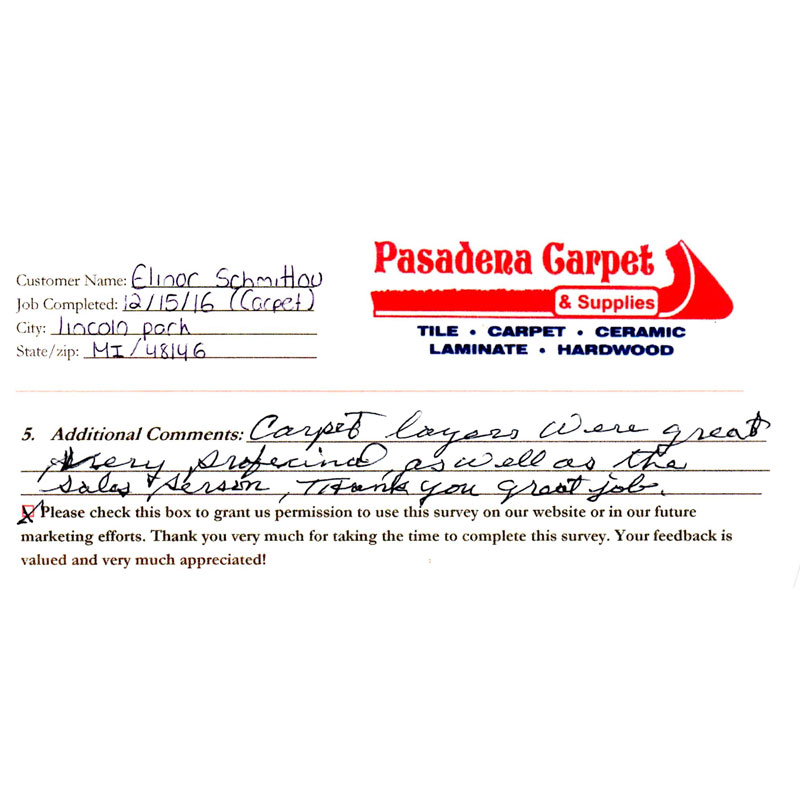 Pasadena Carpet
& Supplies
TILE • CARPET • CERAMIC
LAMINATE • HARDWOOD
Customer Name: Elinor Schmittou
Job Completed: 12/15/16 (Carpet)
City: lincoln park
State/zip: MI/48146
5. Additional Comments: Carpet layers were great
very as well as the
Sales Person, Thank you great job.
Please check this box to grant us permission to use this survey on our website or in our future
marketing efforts. Thank you very much for taking the time to complete this survey. Your feedback is
valued and very much appreciated!